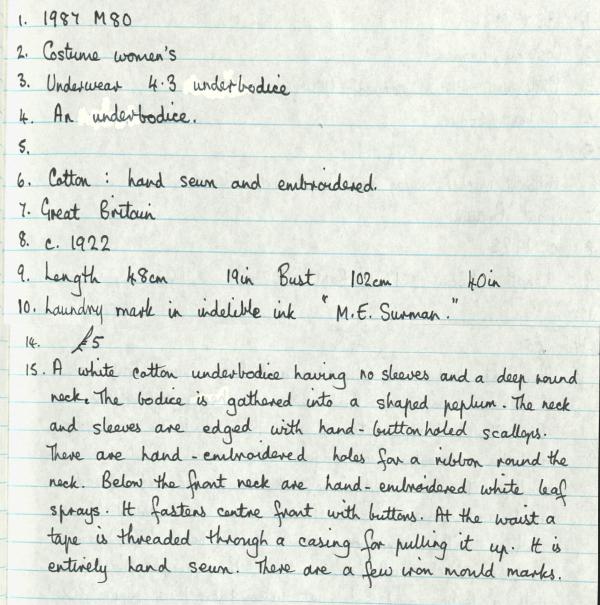 1. 1987 M80
2. Costume women's
3. Underwear 4.3 underbodice
4. An underbodice.
5.
6. Cotton : hand sewn and embroidered.
7. Great Britain
8. c. 1922
9. Length 48cm 19in Bust 102cm 40in
10. Laundry mark in indelible ink "M.E. Surman."
14. £5
15. A white cotton underbodice having no sleeves and a deep round
neck. The bodice is gathered into a shaped peplum. The neck
and sleeves are edged with hand-buttonholed scallops.
There are hand-embroidered holes for a ribbon round the
neck. Below the front neck are hand-embroidered white leaf
sprays. It fastens centre front with buttons. At the waist a
tape is threaded through a casing for pulling it up. It is
entirely hand sewn. There are a few iron mould marks.